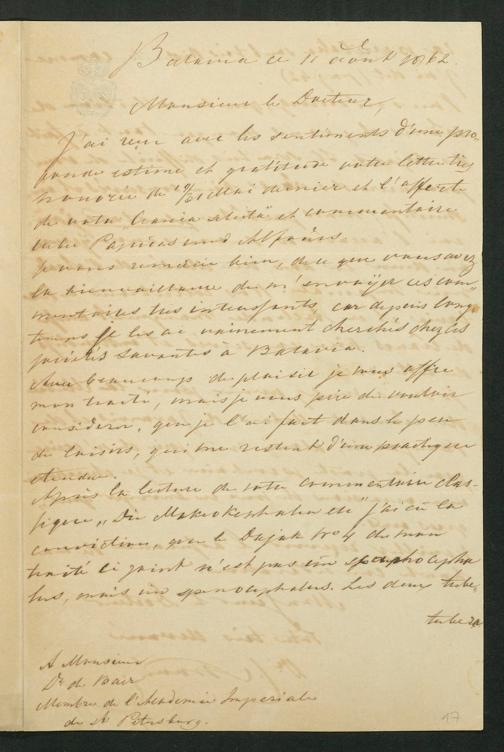 Batavia ce 11 août 1862.
Monsieur le Docteur,
J'ai reçu avec les sentiments d'une pro-
fonde estime et gratitude votre lettre très
honorée de Mai dernier et l'offerte
de votre Crania selecta et commentaire
Papuas und Alfuren.
Je vous remercie bien, de ce que vous avez
la bienveillance de m'envoyer ces com-
mentaires très intressants, car depuis long
temps je les ai vainement cherchés chez les
sociétés savantes à Batavia.
Avec beaucoup de plaisir je vous offre
mon traité, mais je vous prie de vouloir
considerer, que je l'ai fait dans le peu
de loisirs, qui me restent d'une practique
étendue.
Après la lecture de votre commentaire clas-
sique „Die Makrokephalen etc" j'ai eu la
conviction, que le Dajak No 4 de mon
traité ci joint n'est pas un
lus, mais un sphenocephalus. Les deux tube
tubera
A Monsieur
Dr de Baer
Membre de l'Academie Imperiale
de St Petersburg.
17